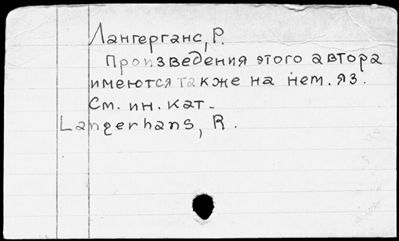 Лангерганс, Р.
Произведения этого автора
имеются также на нем. яз.
См. ин. кат.
Langerhans, R.